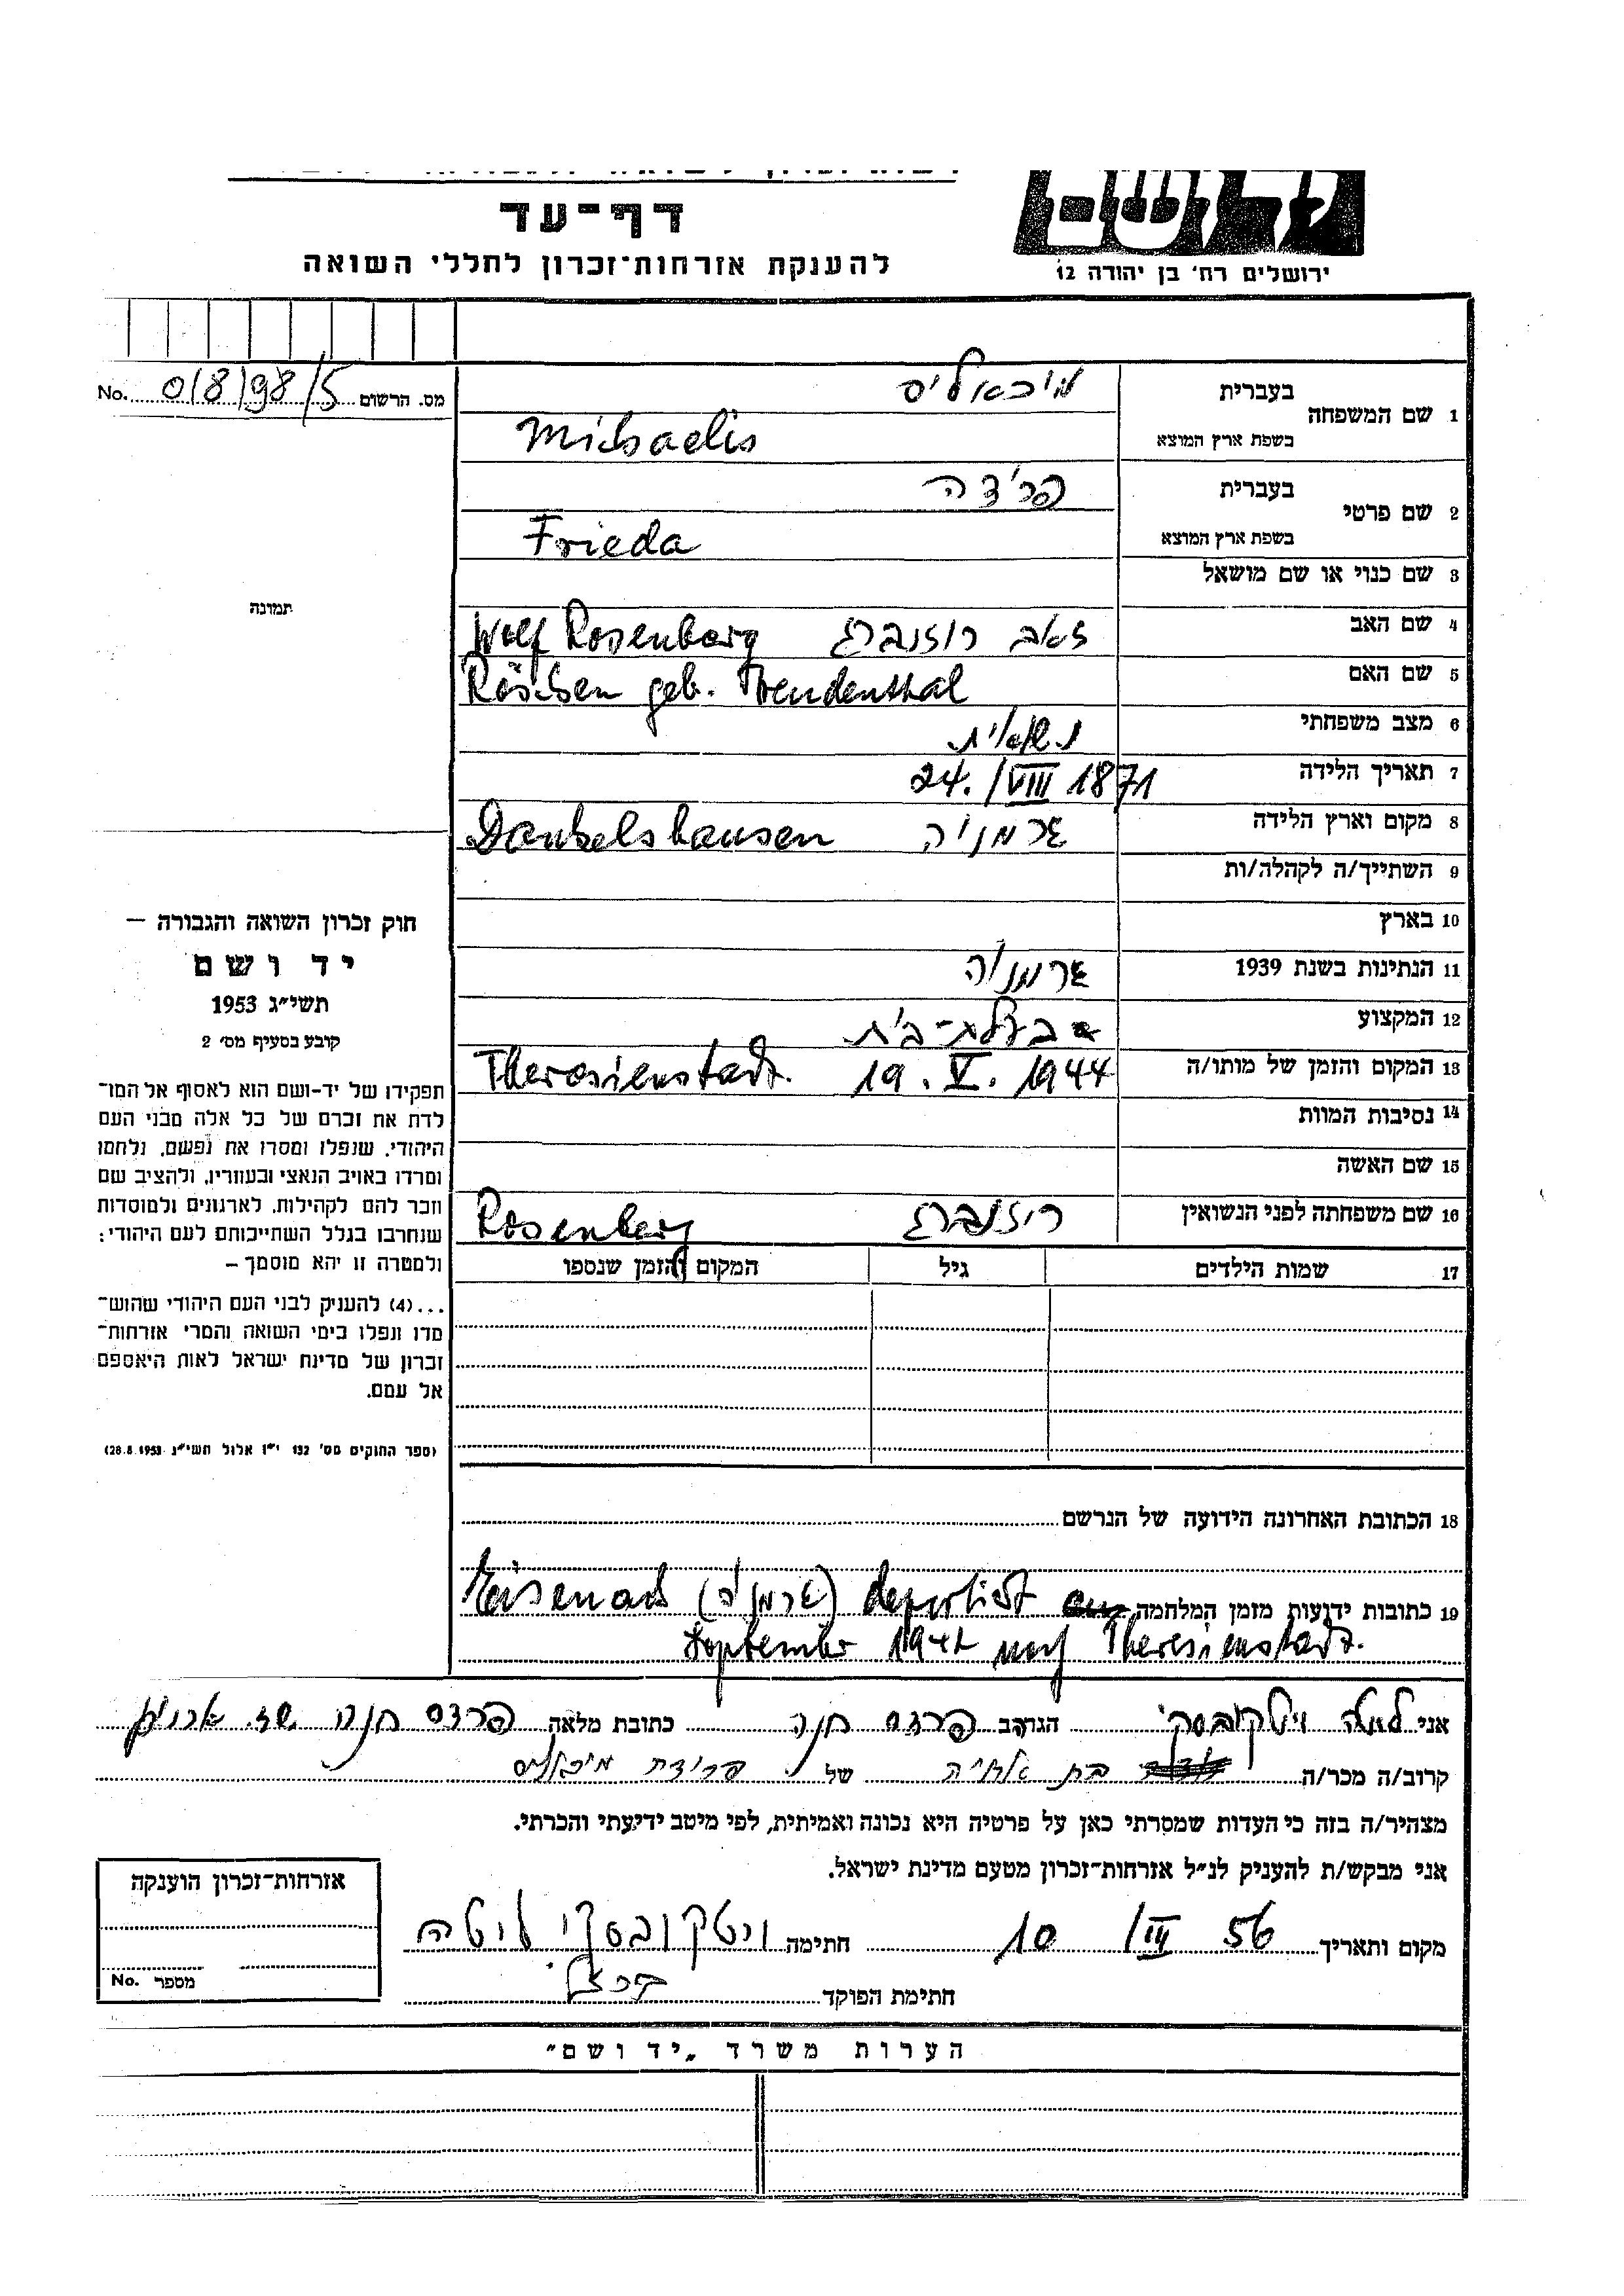 דף-עד
להענקת אזרחות-זכרון לחללי השואה
ושם
ירושלים רח' בן יהודה 12
מס. הרשום 018198/5 No.
1 שם המשפחה
בעברית מיכאליס
בשפת ארץ המוצא Michaelis
2 שם פרטי
בעברית פרידה
בשפת ארץ המוצא Frieda
3 שם כנוי או שם מושאל
4 שם האב זאב רוזנברג Wolf Rosenberg
5 שם האם Röschen geb.
6 מצב משפחתי נשואית
7 תאריך הלידה 24./VIII 1871
8 מקום וארץ הלידה Dankelshausen גרמניה
9 השתייך/ה לקהלה/ות
10 בארץ
11 הנתינות בשנת 1939 גרמניה
12 המקצוע בעלת-בית
13 המקום והזמן של מותו/ה Theresienstadt. 19. V. 1944
14 נסיבות המוות
15 שם האשה
16 שם משפחתה לפני הנשואין רוזנברג Rosenberg
17 שמות הילדים גיל המקום והזמן שנספו
תמונה
חוק זכרון השואה והגבורה —
יד ושם
תשי"ג 1953
קובע בסעיף מס' 2
תפקידו של יד-ושם הוא לאסוף אל המו-
לדת את זכרם של כל אלה מבני העם
היהודי, שנפלו ומסרו את נפשם, נלחמו
ומרדו באויב הנאצי ובעוזריו, ולהציב שם
וזכר להם לקהילות, לארגונים ולמוסדות
שנחרבו בגלל השתייכותם לעם היהודי;
ולמטרה זו יהא מוסמך –
...(4) להעניק לבני העם היהודי שהוש-
מדו ונפלו בימי השואה והמרי אזרחות-
זכרון של מדינת ישראל לאות היאספם
אל עמם.
(ספר החוקים מס' 132 י"ז אלול תשי"ג 28.8.1953)
18 הכתובת האחרונה הידועה של הנרשם
19 כתובות ידועות מזמן המלחמה Eisenach (גרמניה) deportiert
September 1942 nach Theresienstadt.
אני ויטקובסקי הגר/ה ב פרדס חנה כתובת מלאה פרדס חנה
קרוב/ה מכר/ה בת אחיה של פרידה מיכאליס
מצהיר/ה בזה כי העדות שמסרתי כאן על פרטיה היא נכונה ואמיתית, לפי מיטב ידיעתי והכרתי.
אני מבקש/ת להעניק לנ"ל אזרחות-זכרון מטעם מדינת ישראל.
מקום ותאריך 10 /III 56 חתימה ויטקובסקי
חתימת הפוקד
אזרחות-זכרון הוענקה
מספר No.
הערות משרד „יד ושם"